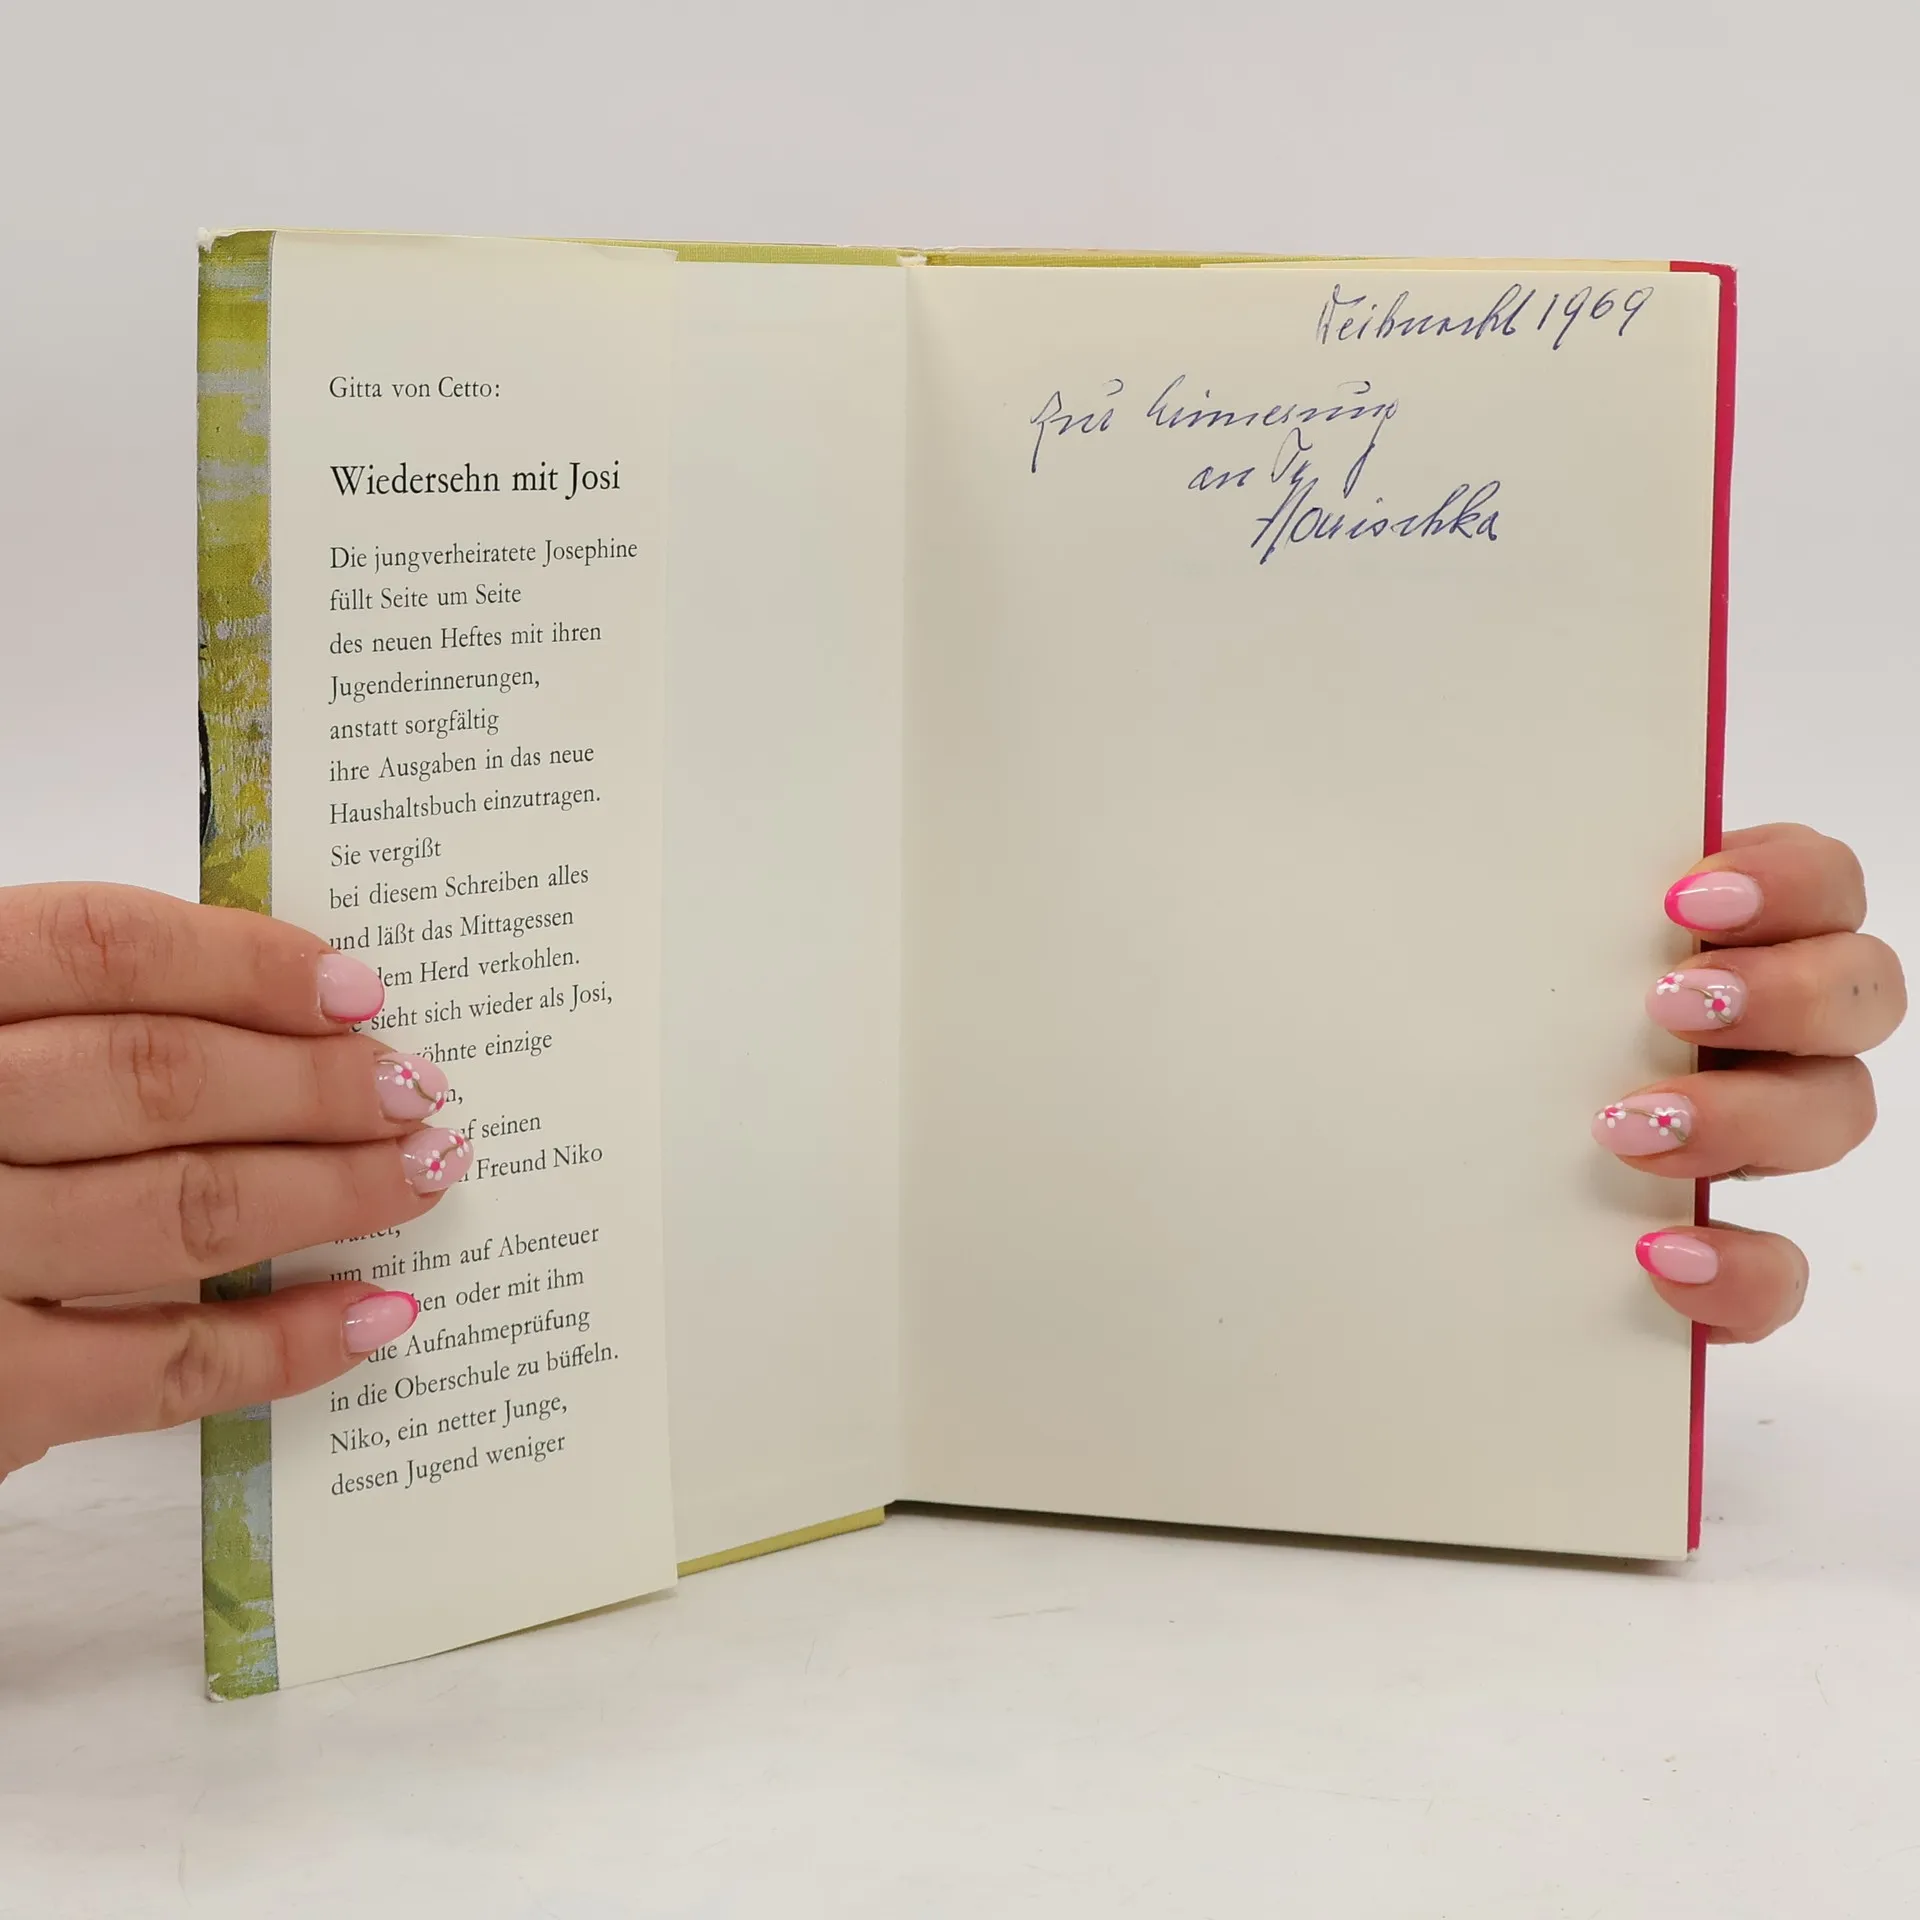 Gitta von Cetto:
Wiedersehn mit Josi
Die jungverheiratete Josephine
füllt Seite um Seite
des neuen Heftes mit ihren
Jugenderinnerungen,
anstatt sorgfältig
ihre Ausgaben in das neue
Haushaltsbuch einzutragen.
Sie vergißt
bei diesem Schreiben alles
und läßt das Mittagessen
dem Herd verkohlen.
sieht sich wieder als Josi,
einzige
seinen
Freund Niko
wartet,
um mit ihm auf Abenteuer
oder mit ihm
die Aufnahmeprüfung
in die Oberschule zu büffeln.
Niko, ein netter Junge,
dessen Jugend weniger
Weihnacht 1969
Zur Erinnerung
an
Marischka